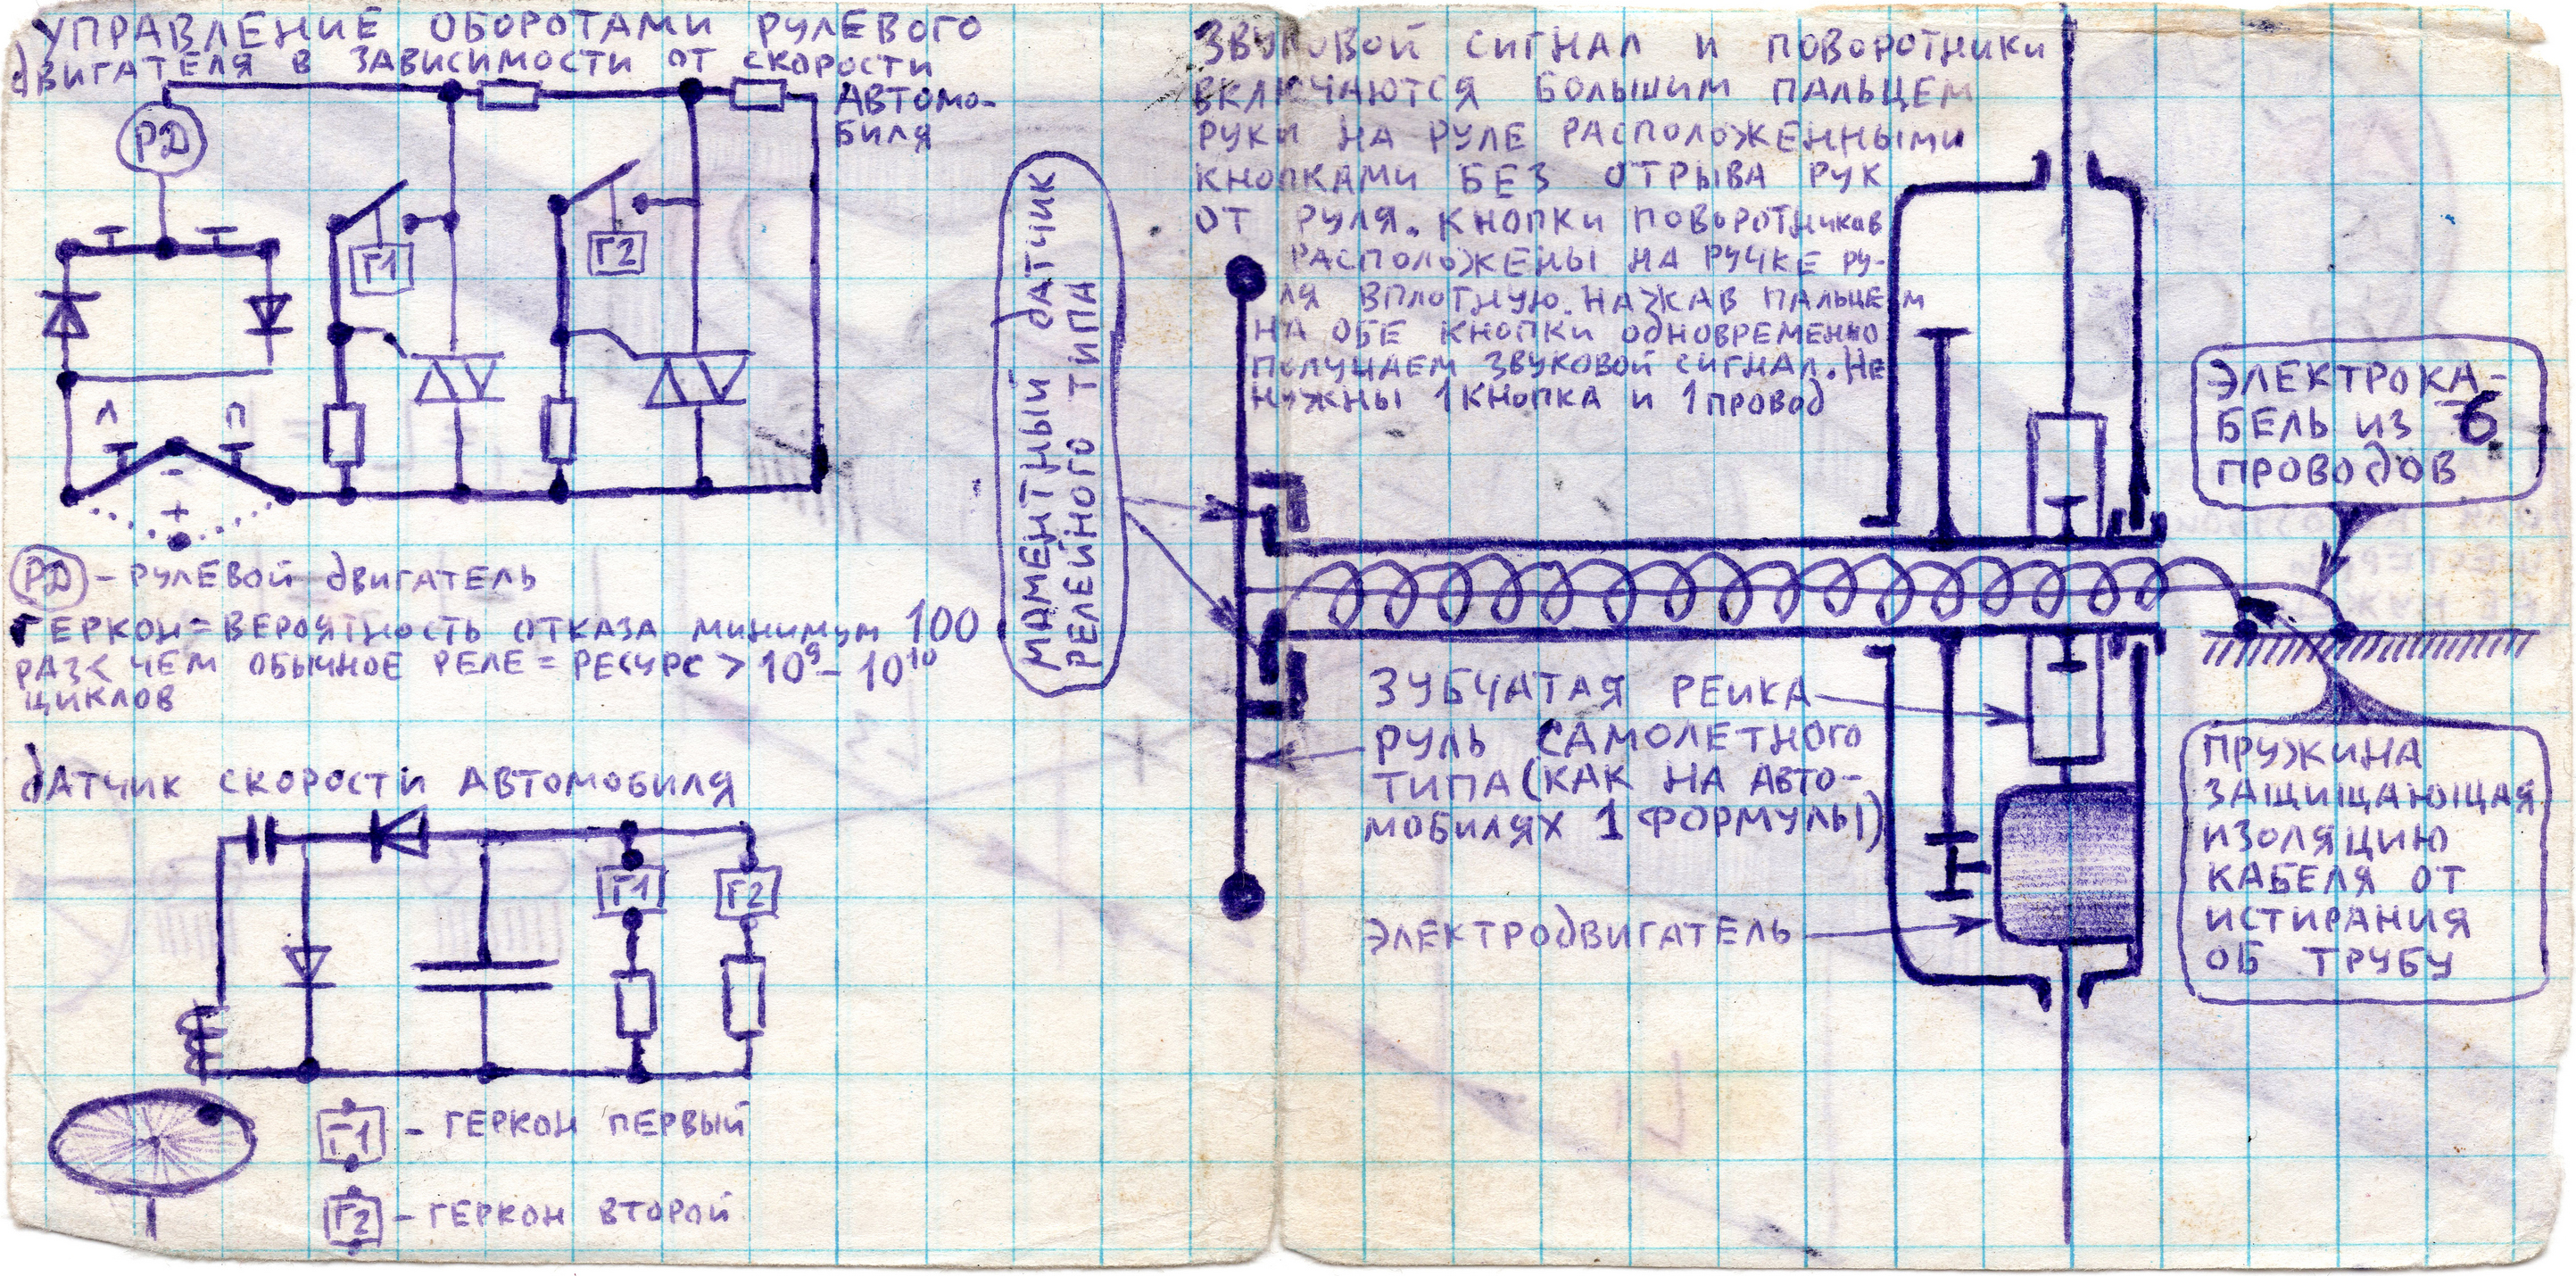 УПРАВЛЕНИЕ ОБОРОТАМИ РУЛЕВОГО
ДВИГАТЕЛЯ В ЗАВИСИМОСТИ ОТ СКОРОСТИ
АВТОМО-
БИЛЯ
РД
Г1
Г2
Л
П
-
+
РД - РУЛЕВОЙ ДВИГАТЕЛЬ
ГЕРКОН = ВЕРОЯТНОСТЬ ОТКАЗА МИНИМУМ 100
РАЗ < ЧЕМ ОБЫЧНОЕ РЕЛЕ = РЕСУРС > 10⁹ - 10¹⁰
ЦИКЛОВ
ДАТЧИК СКОРОСТИ АВТОМОБИЛЯ
Г1
Г2
Г1 - ГЕРКОН ПЕРВЫЙ
Г2 - ГЕРКОН ВТОРОЙ
МОМЕНТНЫЙ ДАТЧИК
РЕЛЕЙНОГО ТИПА
ЗВУКОВОЙ СИГНАЛ И ПОВОРОТНИКИ
ВКЛЮЧАЮТСЯ БОЛЬШИМ ПАЛЬЦЕМ
РУКИ НА РУЛЕ РАСПОЛОЖЕННЫМИ
КНОПКАМИ БЕЗ ОТРЫВА РУК
ОТ РУЛЯ. КНОПКИ ПОВОРОТНИКОВ
РАСПОЛОЖЕНЫ НА РУЧКЕ РУ-
ЛЯ ВПЛОТНУЮ. НАЖАВ ПАЛЬЦЕМ
НА ОБЕ КНОПКИ ОДНОВРЕМЕННО
ПОЛУЧАЕМ ЗВУКОВОЙ СИГНАЛ. НЕ
НУЖНЫ 1 КНОПКА И 1 ПРОВОД
ЭЛЕКТРОКА-
БЕЛЬ ИЗ 6
ПРОВОДОВ
ЗУБЧАТАЯ РЕИКА
РУЛЬ САМОЛЕТНОГО
ТИПА (КАК НА АВТО-
МОБИЛЯХ 1 ФОРМУЛЫ)
ЭЛЕКТРОДВИГАТЕЛЬ
ПРУЖИНА
ЗАЩИЩАЮЩАЯ
ИЗОЛЯЦИЮ
КАБЕЛЯ ОТ
ИСТИРАНИЯ
ОБ ТРУБУ